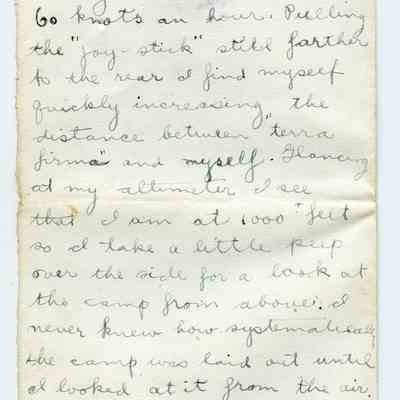 60 knots an hour. Pulling
the "joy-stick" still farther
to the rear I find myself
quickly increasing the
distance between "terra
firma" and myself. Glancing
at my altimeter I see
that I am at 1000 feet
so I take a little peep
over the side for a look at
the camp from above. I
never knew how systematically
the camp was laid out until
I looked at it from the air.